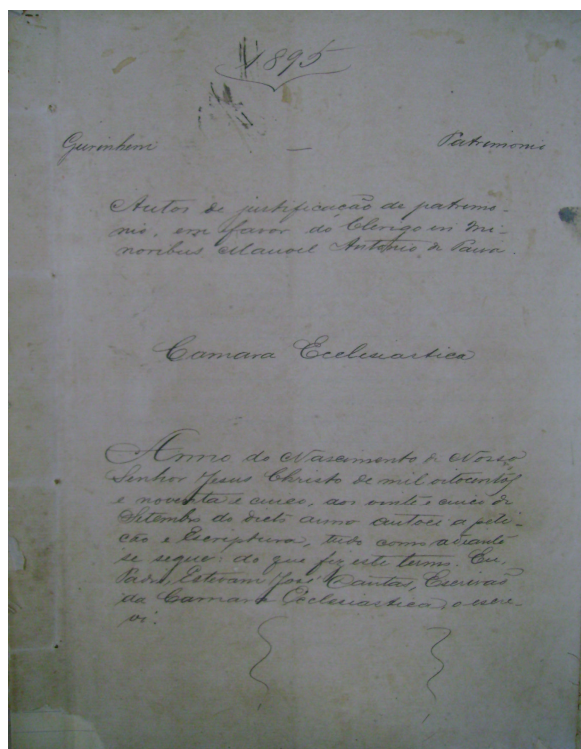 1895
Gurinhem — Patrimonio
Autos de justificação de patrimo-
nio, em favor do Clerigo in Mi-
noribus Manoel Antonio de Paiva.
Camara Ecclesiastica
Anno do Nascimento de Nosso
Senhor Jesus Christo de mil oitocentos
e noventa e cinco, aos vinte e cinco de
Setembro do dicto anno autoei a peti-
ção e Escriptura, tudo como adiante
se segue: do que fiz este termo. Eu,
Padre, Estevam José Dantas, Escrivão
da Camara Ecclesiastica, o escre-
vi.